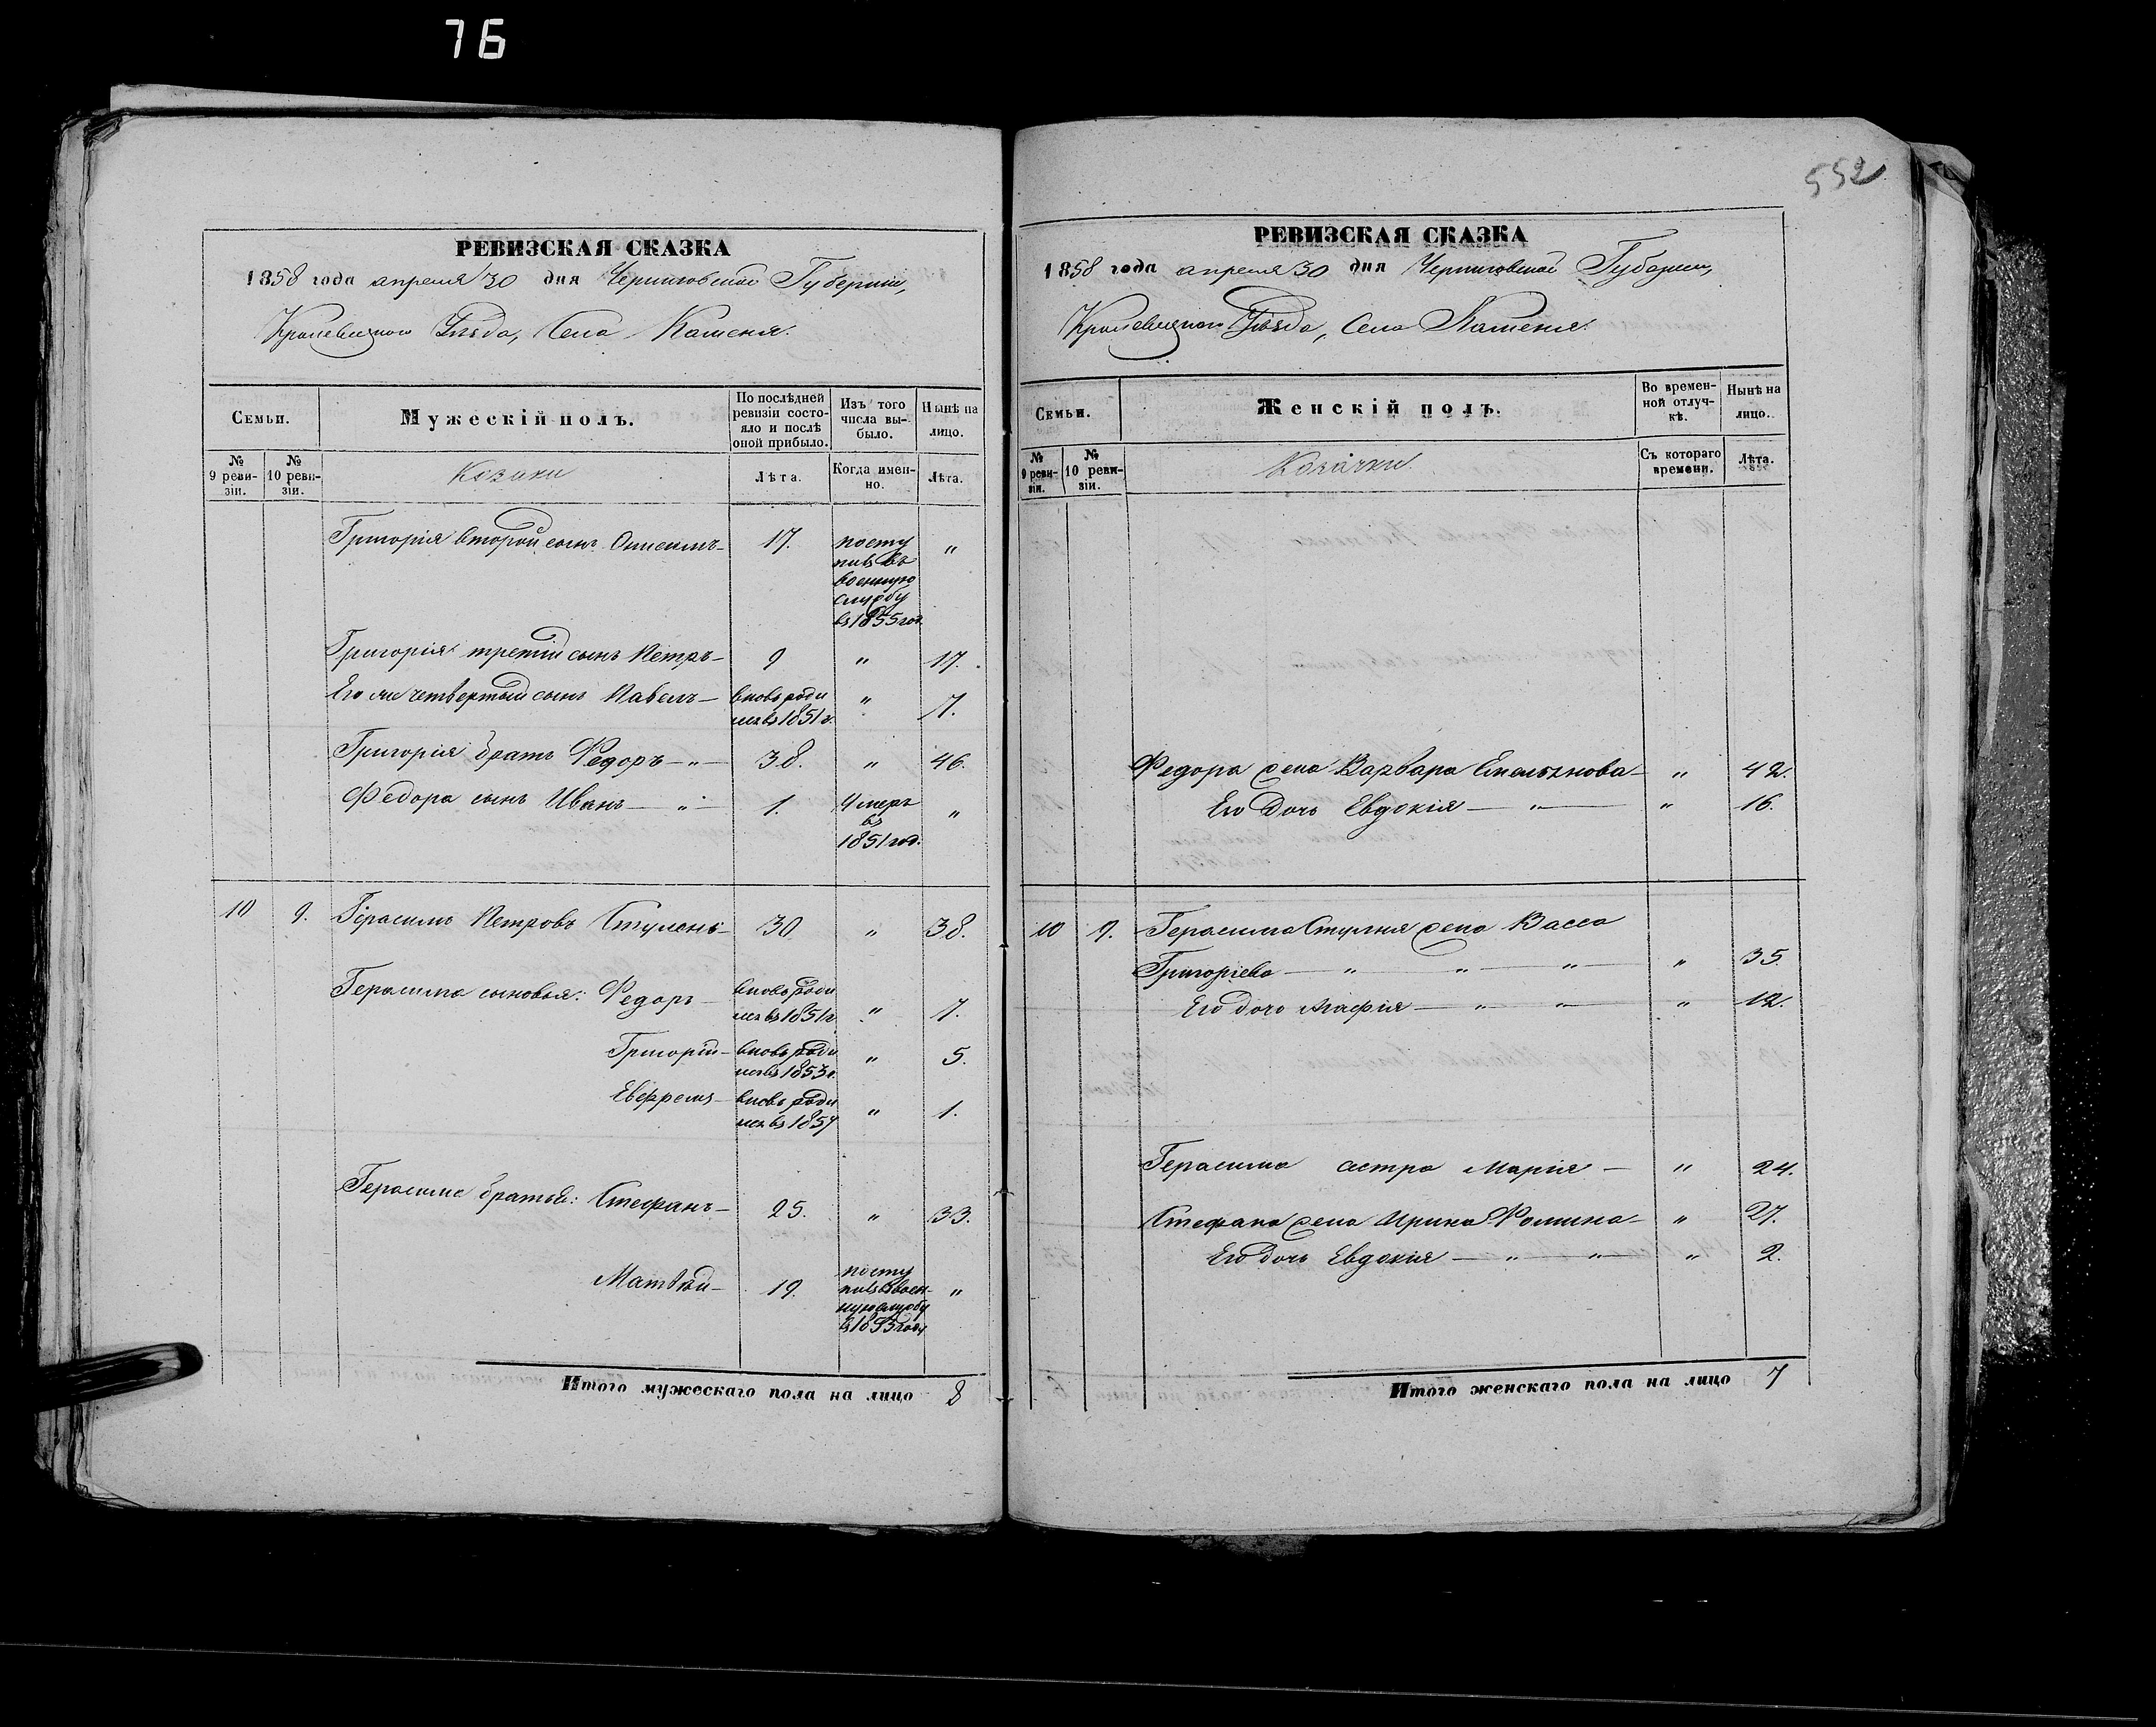 76
552
РЕВИЗСКАЯ СКАЗКА
1858 года апреля 30 дня Черниговской Губернии,
Кролевецкого Уѣзда, Села Каменя.
Семьи.
Мужескій полъ.
По послѣдней ревизіи состояло и послѣ оной прибыло.
Изъ того числа выбыло.
Нынѣ на лицо.
№ 9 ревизіи.
№ 10 ревизіи.
Козаки
Лѣта.
Когда именно.
Лѣта.
Григорія второй сынъ Онисимъ 17. посту
пилъ въ
военную
службу
въ 1855 год. "
Григорія третій сынъ Петръ 9 " 17.
Его же четвертый сынъ Павелъ вновь роди
лся въ 1851 г. " 7.
Григорія братъ Федоръ " 38. " 46.
Федора сынъ Иванъ " 1. Умеръ
въ
1851 год. "
10 9. Герасимъ Петровъ Ступень 30 " 38.
Герасима сыновья: Федоръ вновь роди
лся въ 1851 г. " 7.
Григорій вновь роди
лся въ 1853 г. " 5.
Евфремъ вновь роди
лся въ 1857 " 1.
Герасима братья: Стефанъ 25. " 33.
Матвѣй 19. посту
пилъ въ воен-
ную службу
въ 1855 году "
Итого мужескаго пола на лицо 8
РЕВИЗСКАЯ СКАЗКА
1858 года апреля 30 дня Черниговской Губернии,
Кролевецкого Уѣзда, Села Каменя.
Семьи.
Женскій полъ.
Во временной отлучкѣ.
Нынѣ на лицо.
№ 9 ревизіи.
№ 10 ревизіи.
Козачки
Съ котораго времени.
Лѣта.
Федора жена Варвара Емельянова " 42.
Его дочь Евдокія " " 16.
10 9. Герасима Ступня жена Васса
Григоріева " " " " 35.
Его дочь Агафія " " " 12.
Герасима сестра Марія " 24.
Стефана жена Ирина Фомина " 27.
Его дочь Евдокія " " " 2.
Итого женскаго пола на лицо 7